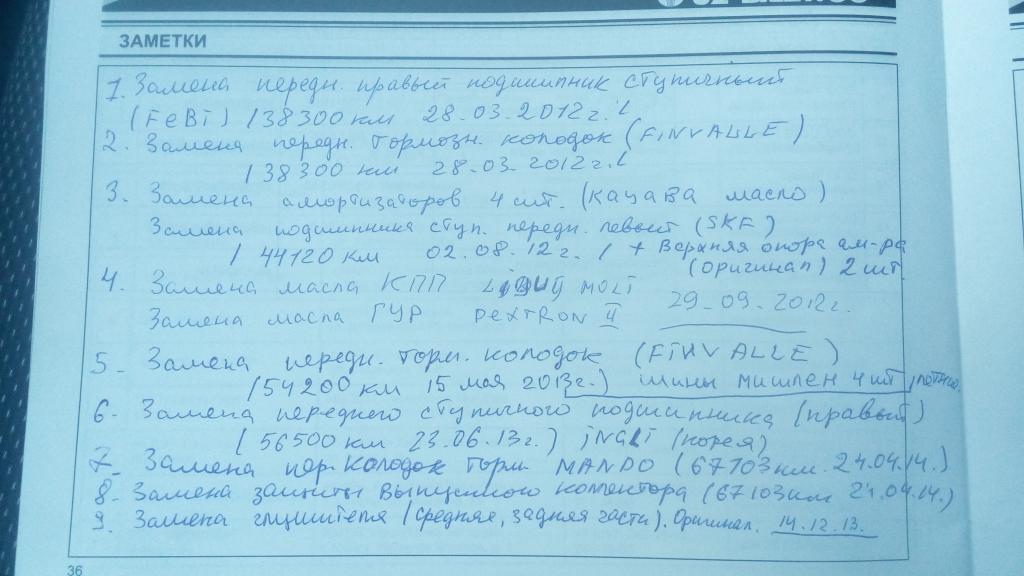 ЗАМЕТКИ
1. Замена передн. правый подшипник ступичный
(FeBI) 138300 км 28.03.2012г.
2. Замена передн. тормозн. колодок (FINVALLE)
138300 км 28.03.2012г.
3. Замена амортизаторов 4 шт. (Каçава масло)
Замена подшипника ступ. передн. левый (SKF)
144120 км 02.08.12г. / + Верхняя опора ам-ра
(оригинал) 2 шт
4. Замена масла КПП LIQUIJ MOLI
29-09-2012г.
Замена масла ГУР DEXTRON II
5. Замена передн. торм. колодок (FINVALLE)
154200 км 15 мая 2013г.) шины мишлен 4 шт, летние
6. Замена переднего ступичного подшипника (правый)
156500 км 23.06.13г.) (корея)
7. Замена пер. колодок торм. MANDO (167103 км. 24.04.14.)
8. Замена защиты выпускного коллектора (167103 км 24.04.14.)
9. Замена глушителя (средняя, задняя части). Оригинал. 14.12.13.
36